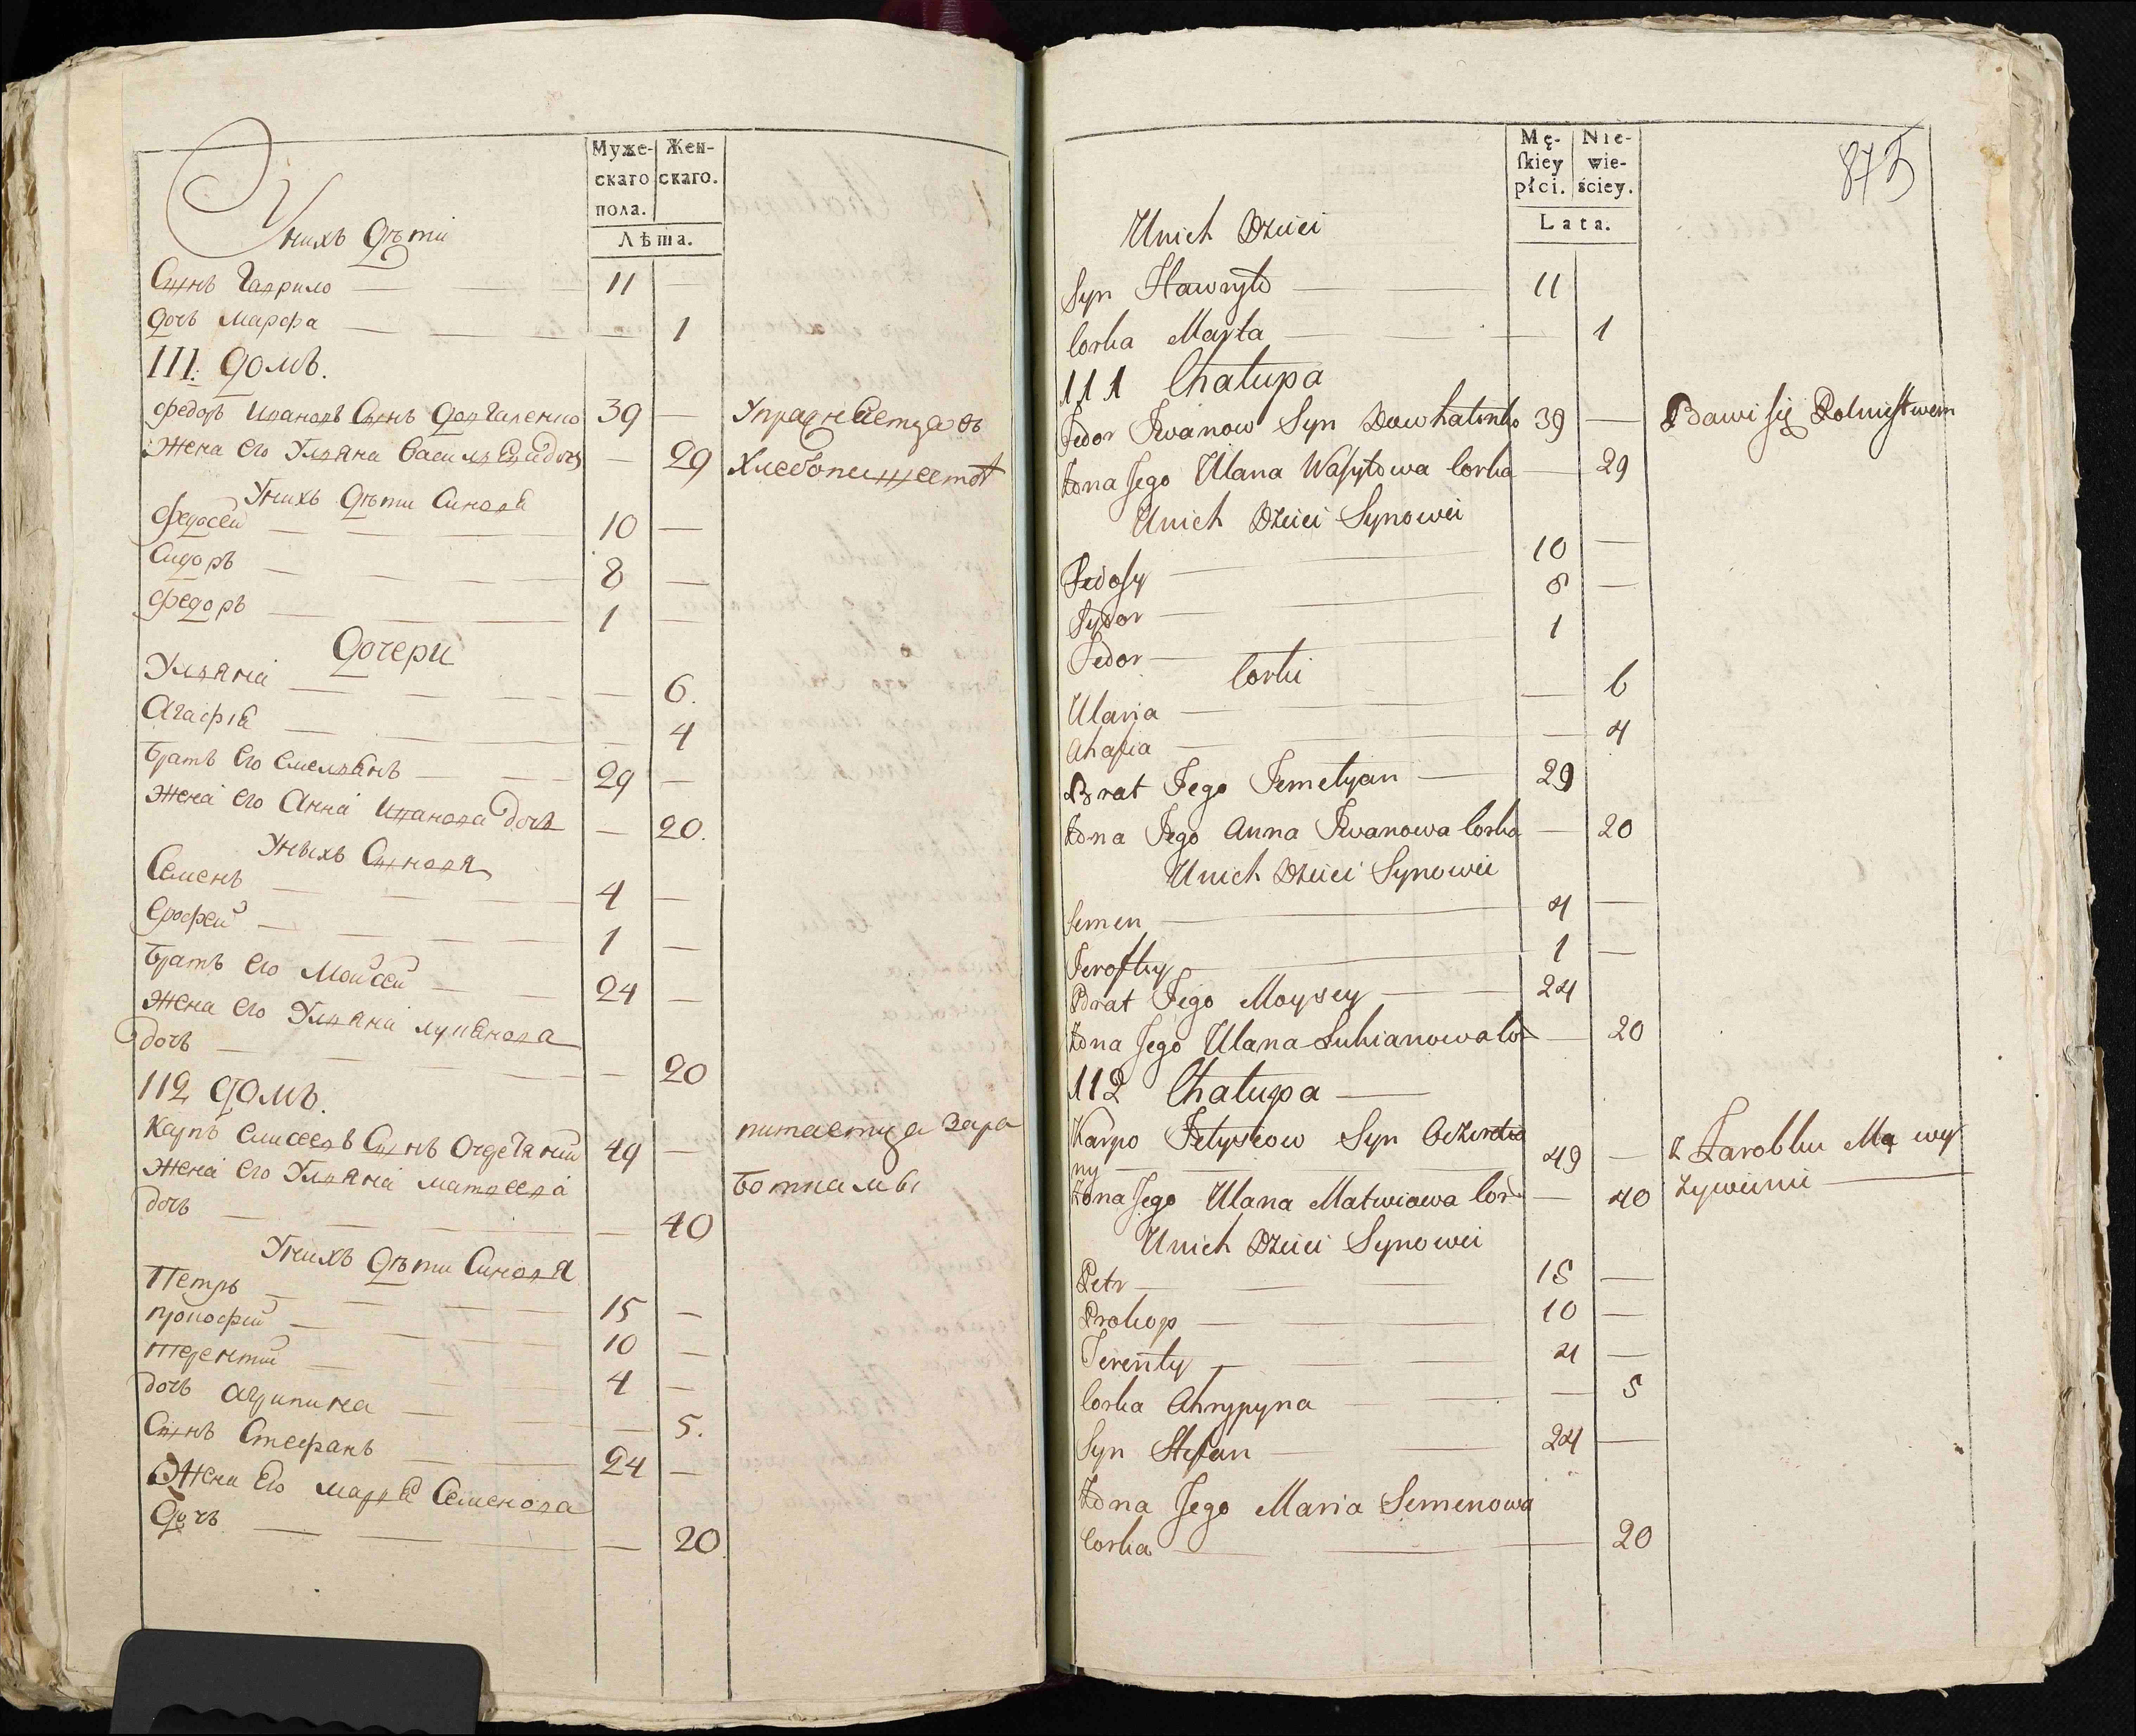 Муже-
скаго
пола.
Жен-
скаго.
Лѣта.
Унихъ Дѣти
Сынъ Гаврило 11
Дочь Марфа 1
111. Домъ.
Федоръ Ивановъ Сынъ Довгаленко 39 — Упражняетца въ
Жена Его Уляна Дочъ — 29 Хлебопашестве
Унихъ Дѣти Синовя
Федосей 10 —
Сидоръ 8 —
Федоръ 1 —
Дочери
Уляна — 6.
Агафія — 4
Братъ Его Емелянъ 29 —
Жена Его Анна Иванова Дочь — 20.
Унихъ Сыновя
Семенъ 4 —
Ерофей 1 —
Братъ Его Моисей 24 —
Жена Его Уляна Лукянова
Дочъ — 20
112 Домъ.
Карпъ Елисеевъ Сынъ 49 — питаетца зара
Жена Его Уляна Матвеева ботками
дочъ — 40
Унихъ Дѣти Синовя
Петръ 15 —
Прокофий 10 —
Терентий 4 —
дочъ Агрипина — 5.
Сынъ Стефанъ 24 —
Жена Его Маря Семенова
Дочъ — 20
Mę-
skiey
płci.
Nie-
wie-
ściey.
Lata.
873
Unich Dzieci
Syn Hawryło 11
Corka Marta — 1
111 Chałupa
Fedor Iwanow Syn Dowhalenko 39 — Bawi się Rolnistwem
Żona Jego Ulana Wasylowa Corka — 29
Unich Dzieci Synowei
Fedosy 10 —
Sydor 8 —
Fedor 1
Corki
Ulana — 6
Ahafia — 4
Brat Jego Jemelyan 29
Żona Jego Anna Iwanowa Corka — 20
Unich Dzieci Synowei
Semen 4 —
Jerofey 1 —
Brat Jego Moysey 24
Żona Jego Ulana Lukianowa Cor — 20
112 Chałupa
Karpo Syn 49 — Z Zarobku Ma wy
ny
Żona Jego Ulana Matwiowa Cor — 40 żywienie
Unich Dzieci Synowei
Petr 15 —
Prokop 10 —
Terenty 4 —
Corka Ahrypyna — 5
Syn Stefan 24 —
Żona Jego Maria Semenowa
Corka — 20